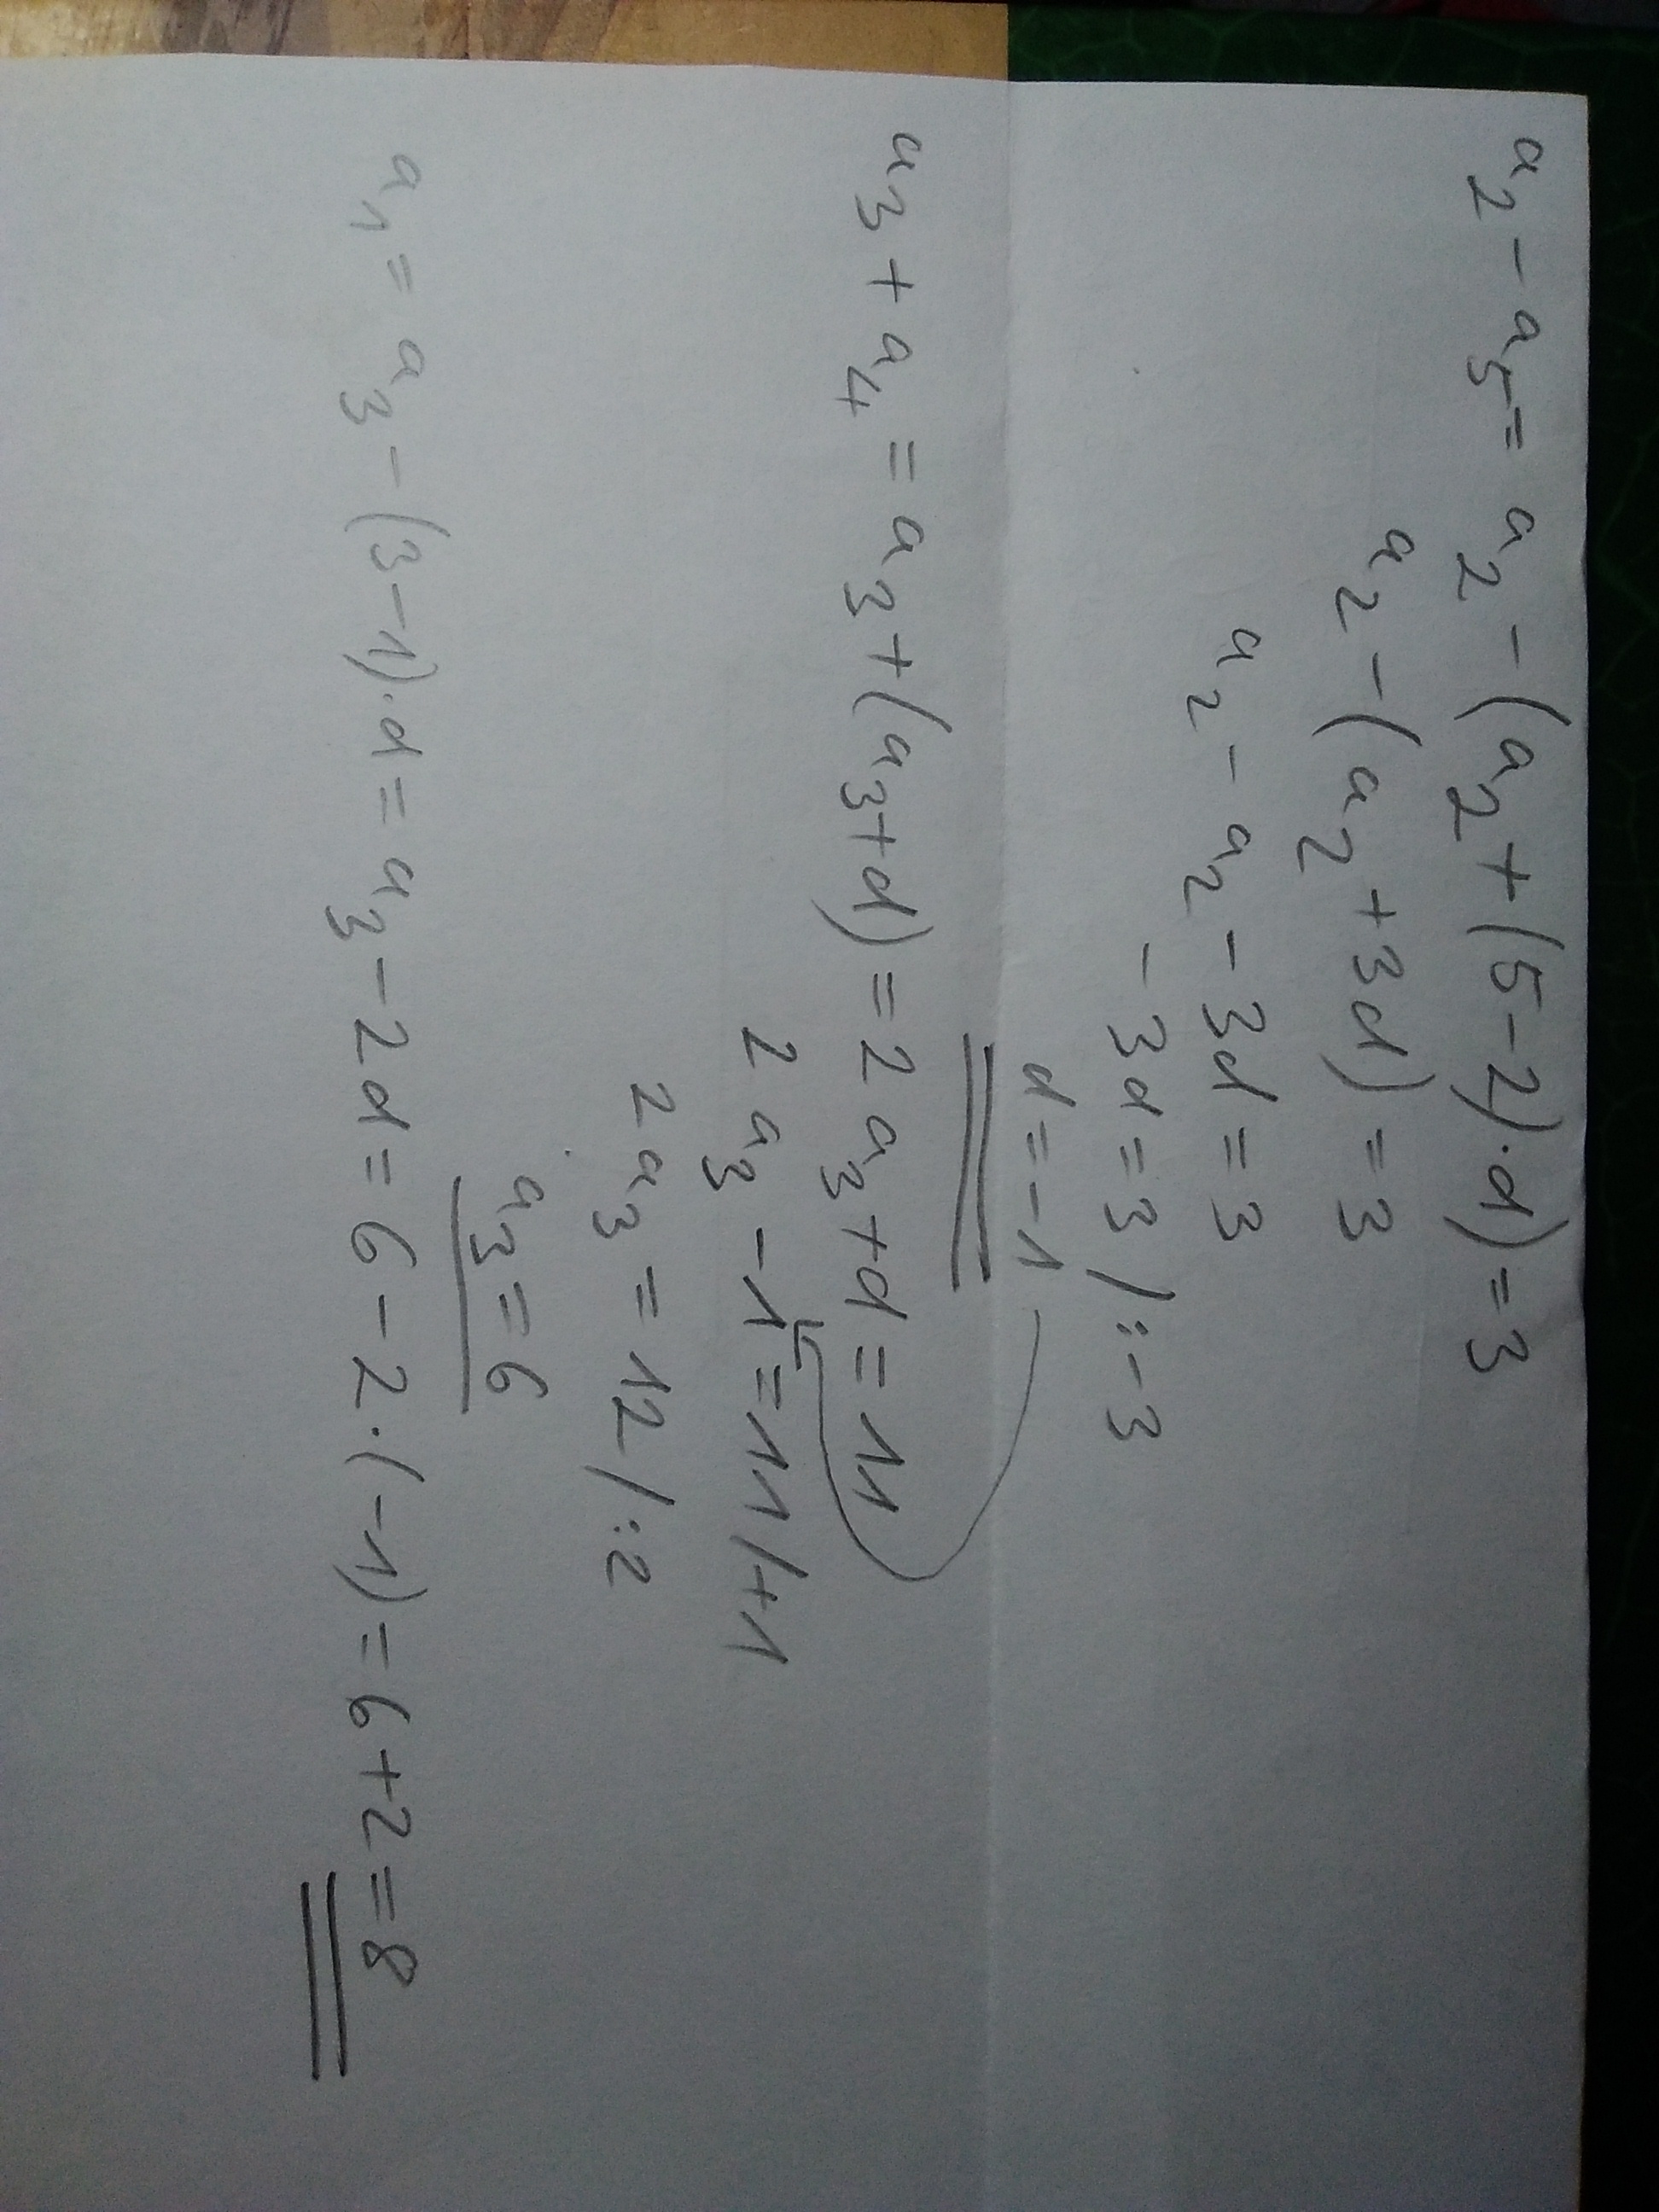 a₂ - a₅ = a₂ - (a₂ + (5-2)·d) = 3
a₂ - (a₂ + 3d) = 3
a₂ - a₂ - 3d = 3
-3d = 3 /:-3
d = -1
a₃ + a₄ = a₃ + (a₃ + d) = 2a₃ + d = 11
2a₃ - 1 = 11 /+1
2a₃ = 12 /:2
a₃ = 6
a₁ = a₃ - (3-1)·d = a₃ - 2d = 6 - 2·(-1) = 6 + 2 = 8